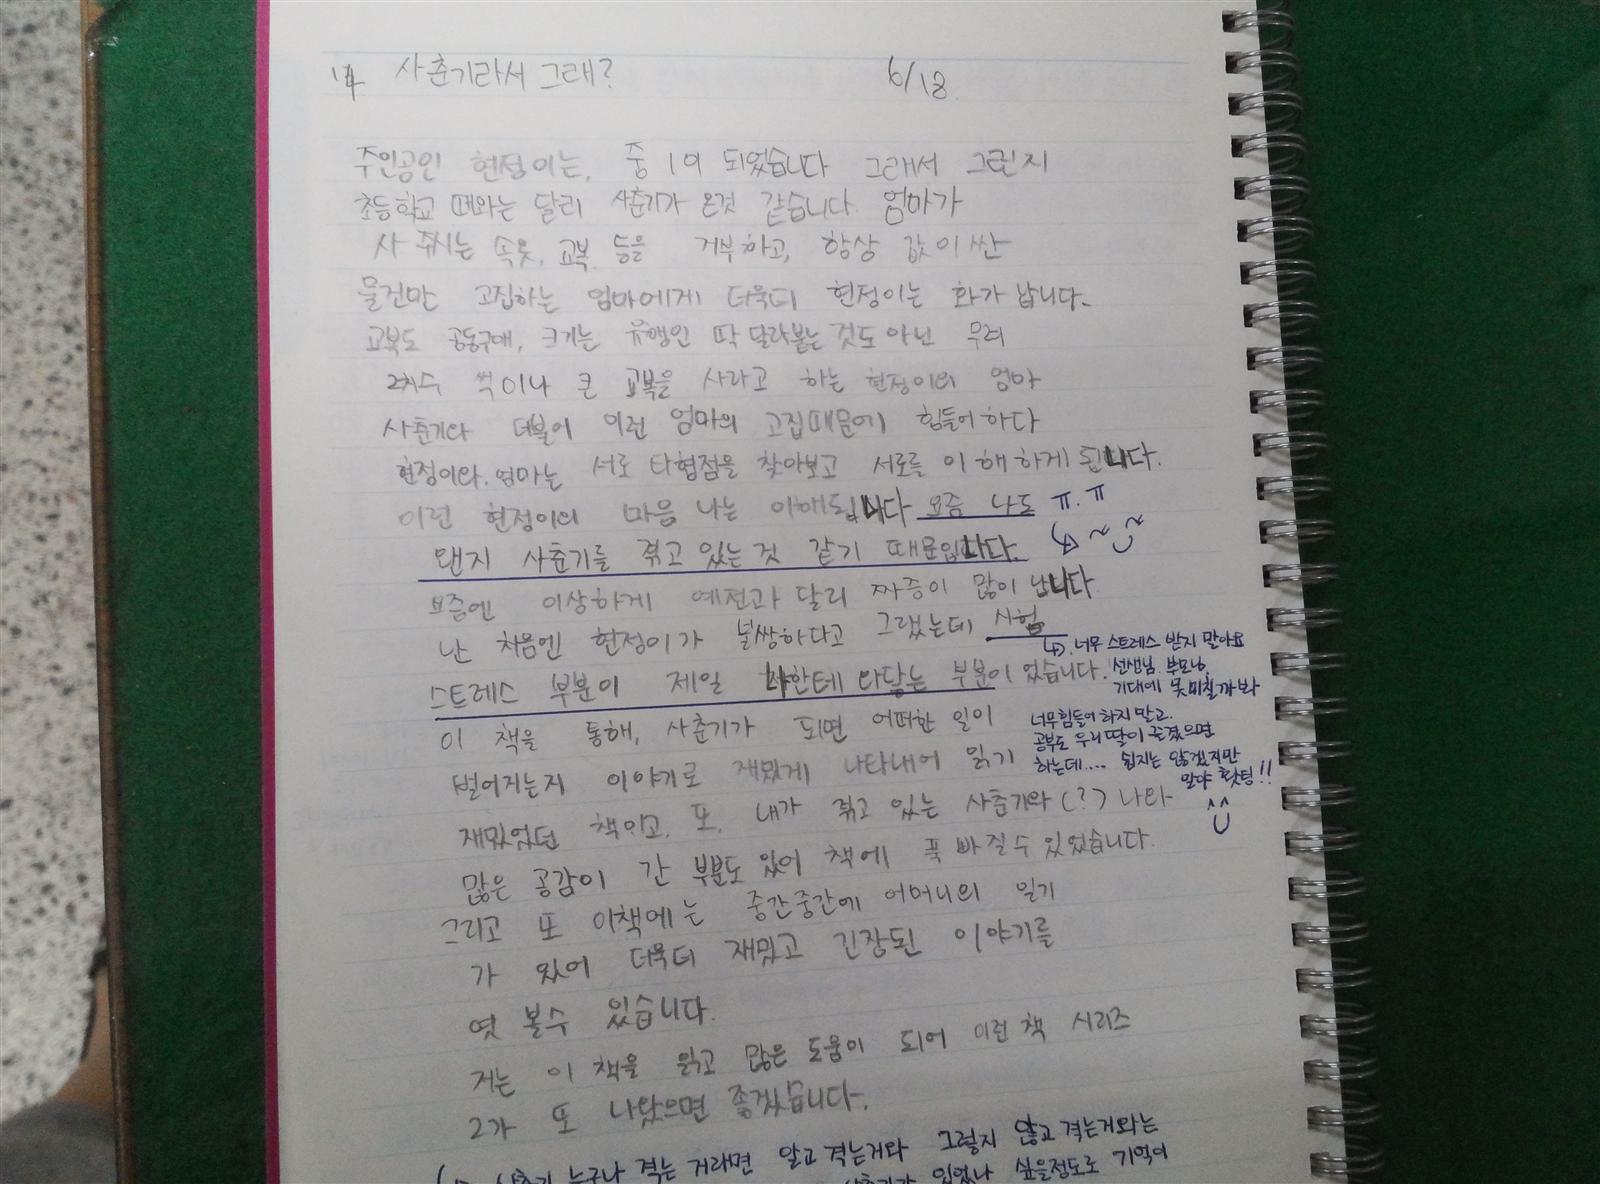 사춘기라서 그래? 6/18
주인공인 현정이는, 중 1이 되었습니다 그래서 그런지
초등학교 때와는 달리 사춘기가 온것 같습니다. 엄마가
사 주시는 속옷, 교복, 등을 거부하고, 항상 값이 싼
물건만 고집하는 엄마에게 더욱더 현정이는 화가 납니다.
교복도 공동구매, 크기는 유행인 딱 달라붙는 것도 아닌 무려
2치수 씩이나 큰 교복을 사라고 하는 현정이의 엄마
사춘기와 더불어 이런 엄마의 고집때문에 힘들어 하다
현정이와. 엄마는 서로 타협점을 찾아보고 서로를 이해 하게 됩니다.
이런 현정이의 마음 나는 이해됩니다 요즘 나도 ㅠ.ㅠ
왠지 사춘기를 겪고 있는 것 같기 때문입니다.
요즘엔 이상하게 예전과 달리 짜증이 많이 납니다
난 처음엔 현정이가 불쌍하다고 그랬는데 시험
너무 스트레스 받지 말아요
스트레스 부분이 제일 나한테 와닿는 부분이 었습니다.
선생님. 부모님,
기대에 못미칠까봐
이 책을 통해, 사춘기가 되면 어떠한 일이
너무힘들어 하지 말고.
공부도 우리딸이 즐겼으면
벌어지는지 이야기로 재밌게 나타내어 읽기
하는데.... 쉽지는 않겠지만
말야 홧팅!!
재밌었던 책이고. 또. 내가 겪고 있는 사춘기와(?) 나와
많은 공감이 간 부분도 있어 책에 푹 빠질수 있었습니다.
그리고 또 이책에는 중간중간에 어머니의 일기
가 있어 더욱더 재밌고 긴장된 이야기를
엿 볼수 있습니다.
저는 이 책을 읽고 많은 도움이 되어 이런 책 시리즈
2가 또 나왔으면 좋겠습니다.
사춘기 누구나 격는 거라면 알고 격는거와 그렇지 않고 격는거와는
사춘기가 있었나 싶을정도로 기억이